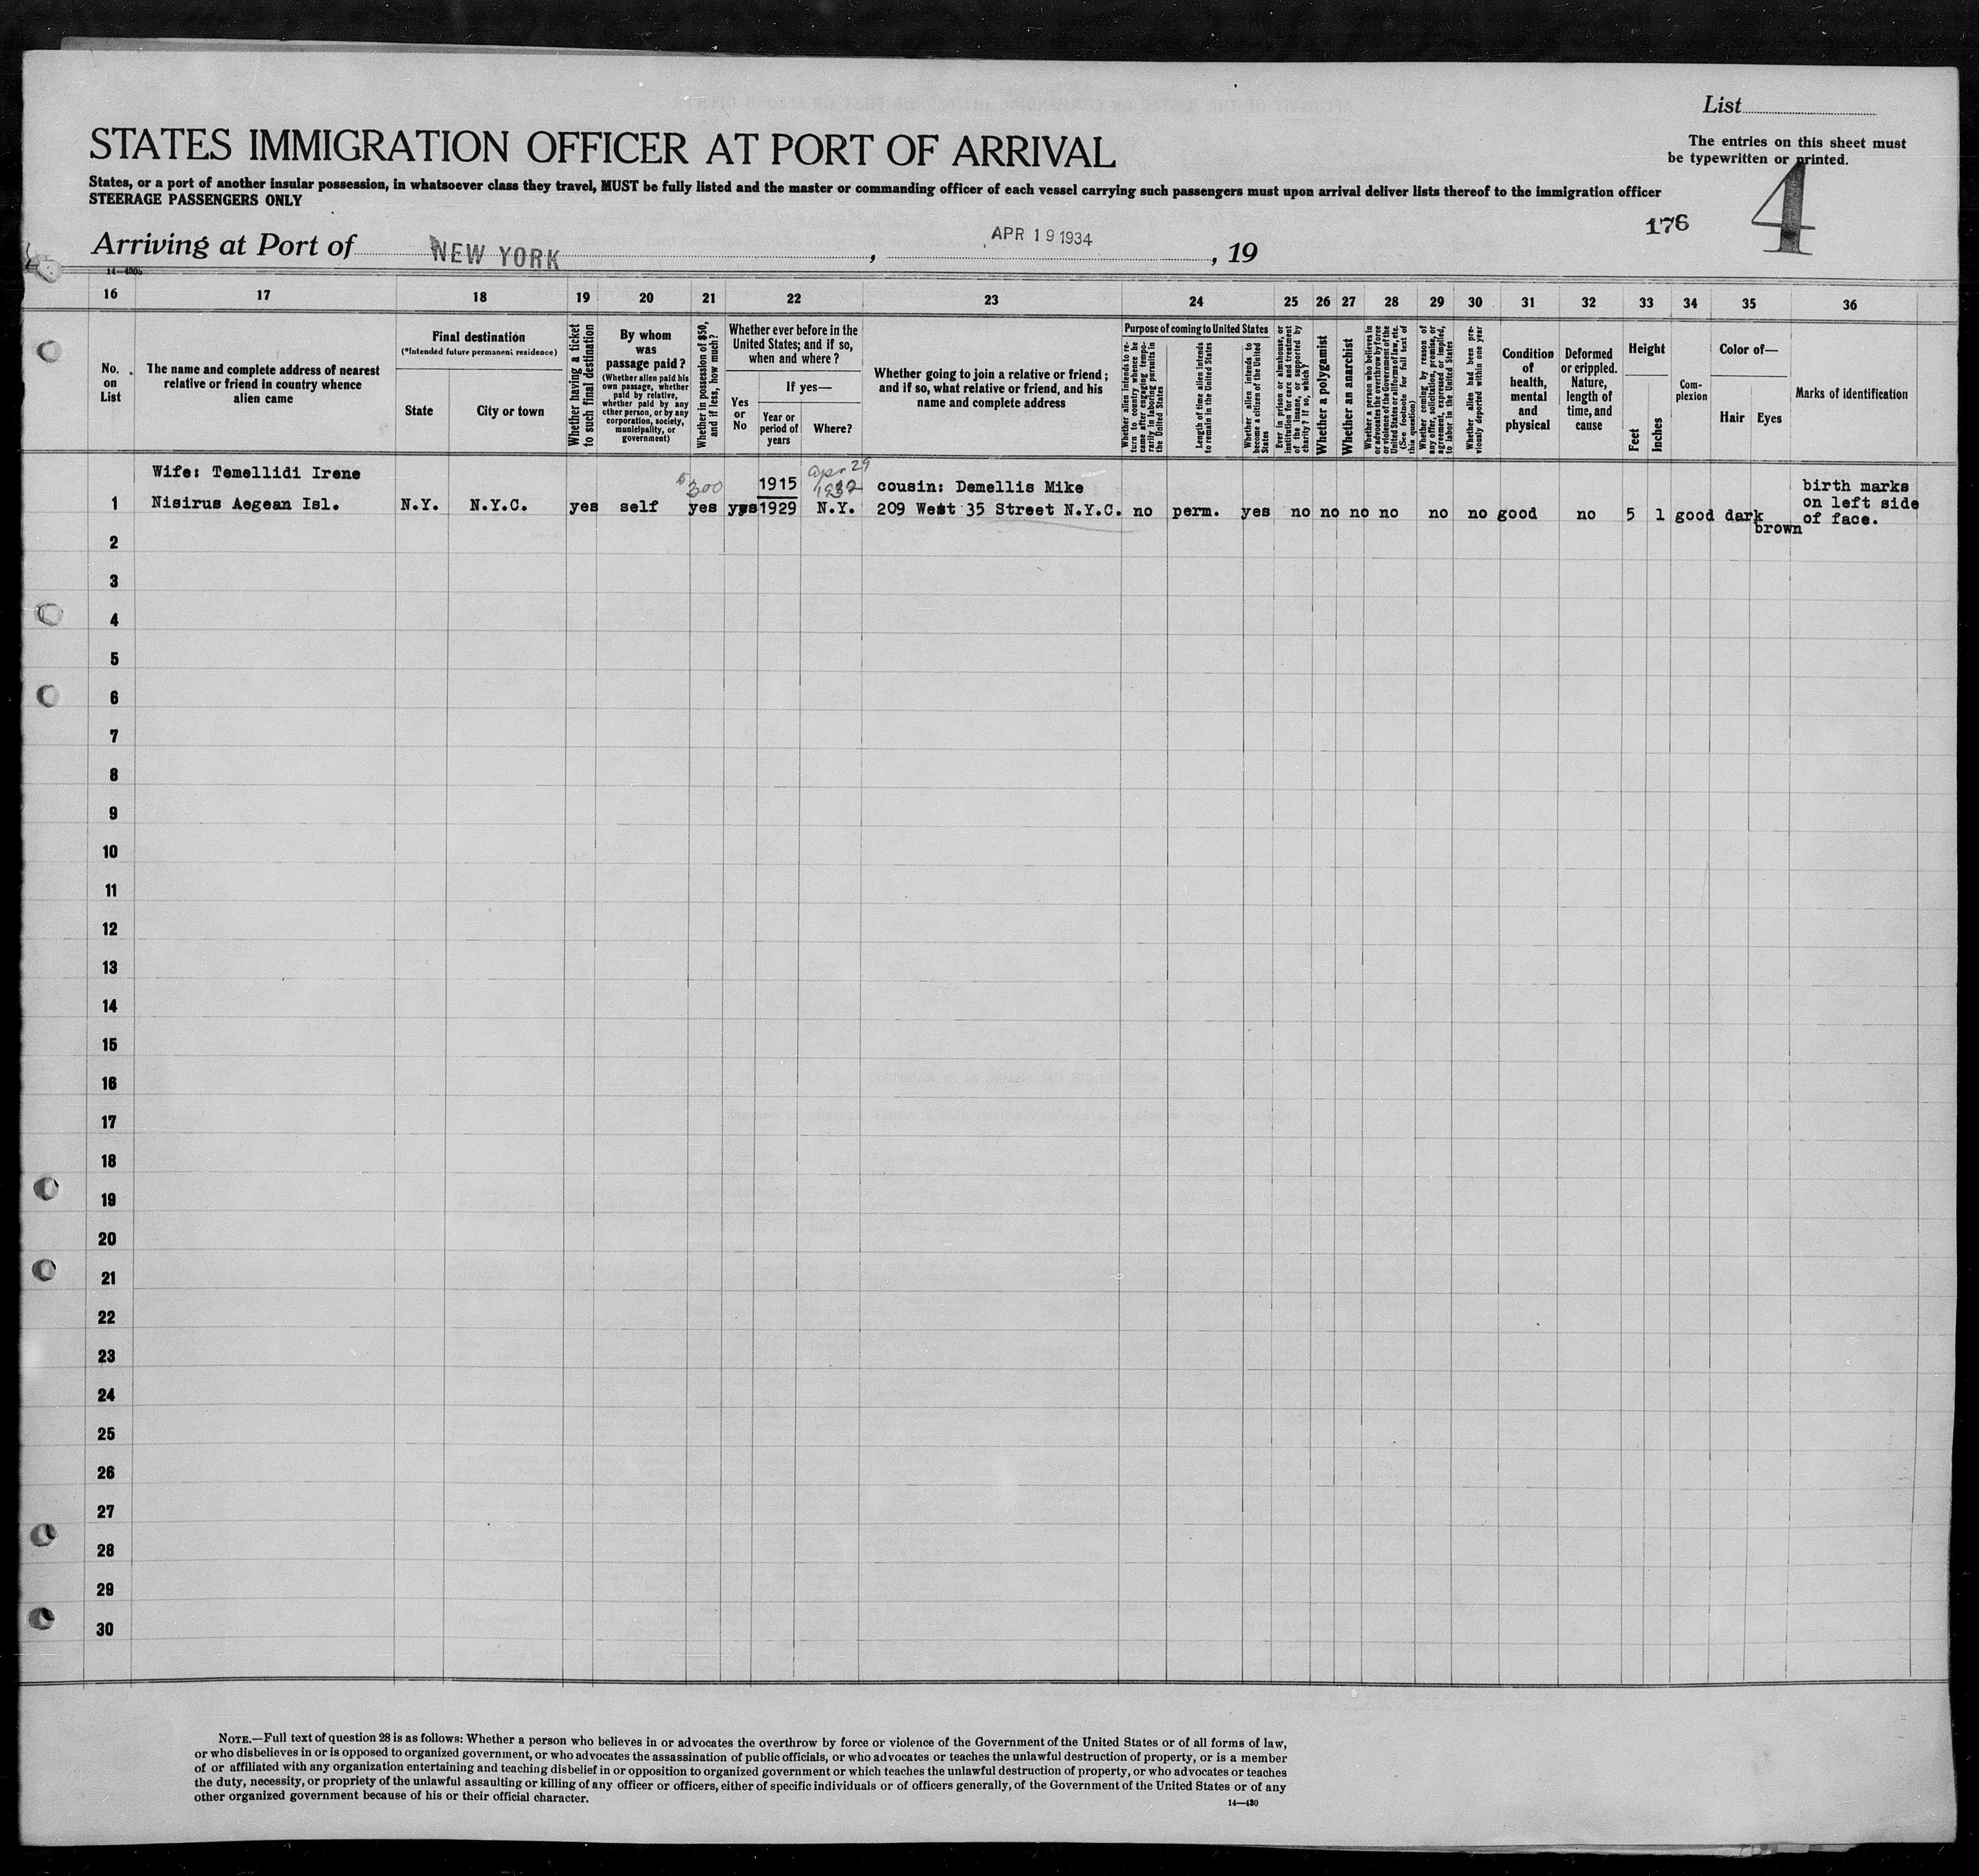 List
STATES IMMIGRATION OFFICER AT PORT OF ARRIVAL
The entries on this sheet must
be typewritten or printed.
States, or a port of another insular possession, in whatsoever class they travel, MUST be fully listed and the master or commanding officer of each vessel carrying such passengers must upon arrival deliver lists thereof to the immigration officer
STEERAGE PASSENGERS ONLY
176 4
Arriving at Port of NEW YORK, APR 19 1934, 19
14—430b
16 17 18 19 20 21 22 23 24 25 26 27 28 29 30 31 32 33 34 35 36
No. on List
The name and complete address of nearest relative or friend in country whence alien came
Final destination
(*Intended future permanent residence)
State
City or town
Whether having a ticket to such final destination
By whom was passage paid?
(Whether alien paid his own passage, whether paid by relative, whether paid by any other person, or by any corporation, society, municipality, or government)
Whether in possession of $50, and if less, how much?
Whether ever before in the United States; and if so, when and where?
Yes or No
If yes—
Year or period of years
Where?
Whether going to join a relative or friend; and if so, what relative or friend, and his name and complete address
Purpose of coming to United States
Whether alien intends to return to country whence he came after engaging temporarily in laboring pursuits in the United States
Length of time alien intends to remain in the United States
Whether alien intends to become a citizen of the United States
Ever in prison or almshouse, or institution for care and treatment of the insane, or supported by charity? If so, which?
Whether a polygamist
Whether an anarchist
Whether a person who believes in or advocates the overthrow by force or violence of the Government of the United States or all forms of law, etc. (See footnote for full text of this question)
Whether coming by reason of any offer, solicitation, promise, or agreement, expressed or implied, to labor in the United States
Whether alien had been previously deported within one year
Condition of health, mental and physical
Deformed or crippled. Nature, length of time, and cause
Height
Feet
Inches
Complexion
Color of—
Hair
Eyes
Marks of identification
Wife: Temellidi Irene
1 Nisirus Aegean Isl. N.Y. N.Y.C. yes self $300 yes yes 1915 1929 N.Y.
cousin: Demellis Mike
209 West 35 Street N.Y.C. no perm. yes no no no no no no good no 5 1 good dark brown
birth marks
on left side
of face.
2
3
4
5
6
7
8
9
10
11
12
13
14
15
16
17
18
19
20
21
22
23
24
25
26
27
28
29
30
NOTE.—Full text of question 28 is as follows: Whether a person who believes in or advocates the overthrow by force or violence of the Government of the United States or of all forms of law,
or who disbelieves in or is opposed to organized government, or who advocates the assassination of public officials, or who advocates or teaches the unlawful destruction of property, or is a member
of or affiliated with any organization entertaining and teaching disbelief in or opposition to organized government or which teaches the unlawful destruction of property, or who advocates or teaches
the duty, necessity, or propriety of the unlawful assaulting or killing of any officer or officers, either of specific individuals or of officers generally, of the Government of the United States or of any
other organized government because of his or their official character.
14—430